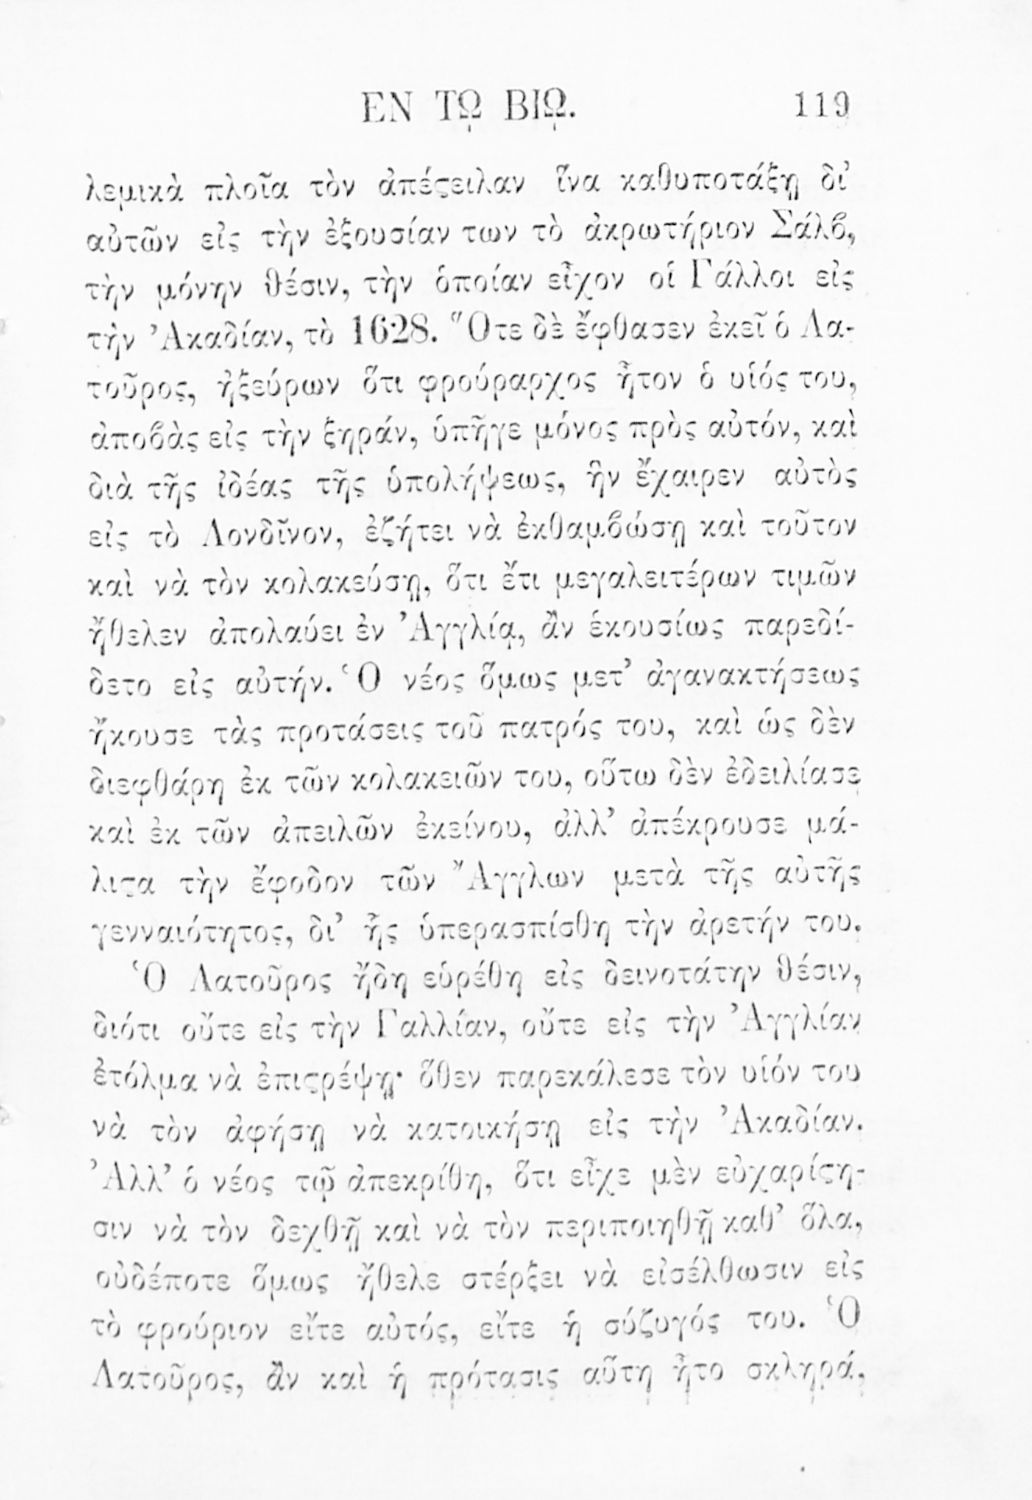 ΕΝ ΤΩ ΒΙΩ. 119
λεμικὰ πλοῖα τὸν ἀπέςειλαν ἵνα καθυποτάξῃ δι'
αὐτῶν εἰς τὴν ἐξουσίαν των τὸ ἀκρωτήριον Σάλϐ,
τὴν μόνην θέσιν, τὴν ὁποίαν εἶχον οἱ Γάλλοι εἰς
τὴν Ἀκαδίαν, τὸ 1628. Ὅτε δὲ ἔφθασεν ἐκεῖ ὁ Λα-
τοῦρος, ἠξεύρων ὅτι φρούραρχος ἦτον ὁ υἱός του,
ἀποϐὰς εἰς τὴν ξηράν, ὑπῆγε μόνος πρὸς αὐτόν, καὶ
διὰ τῆς ἰδέας τῆς ὑπολήψεως, ἣν ἔχαιρεν αὐτὸς
εἰς τὸ Λονδῖνον, ἐζήτει νὰ ἐκθαμϐώσῃ καὶ τοῦτον
καὶ νὰ τὸν κολακεύσῃ, ὅτι ἔτι μεγαλειτέρων τιμῶν
ἤθελεν ἀπολαύει ἐν Ἀγγλίᾳ, ἂν ἑκουσίως παρεδί-
δετο εἰς αὐτήν. Ὁ νέος ὅμως μετ' ἀγανακτήσεως
ἤκουσε τὰς προτάσεις τοῦ πατρός του, καὶ ὡς δὲν
διεφθάρη ἐκ τῶν κολακειῶν του, οὕτω δὲν ἐδειλίασε
καὶ ἐκ τῶν ἀπειλῶν ἐκείνου, ἀλλ' ἀπέκρουσε μά-
λιςα τὴν ἔφοδον τῶν Ἄγγλων μετὰ τῆς αὐτῆς
γενναιότητος, δι' ἧς ὑπερασπίσθη τὴν ἀρετήν του.
Ὁ Λατοῦρος ἤδη εὑρέθη εἰς δεινοτάτην θέσιν,
διότι οὔτε εἰς τὴν Γαλλίαν, οὔτε εἰς τὴν Ἀγγλίαν
ἐτόλμα νὰ ἐπιςρέψῃ· ὅθεν παρεκάλεσε τὸν υἱόν του
νὰ τὸν ἀφήσῃ νὰ κατοικήσῃ εἰς τὴν Ἀκαδίαν.
Ἀλλ' ὁ νέος τῷ ἀπεκρίθη, ὅτι εἶχε μὲν εὐχαρίςη-
σιν νὰ τὸν δεχθῇ καὶ νὰ τὸν περιποιηθῇ καθ' ὅλα,
οὐδέποτε ὅμως ἤθελε στέρξει νὰ εἰσέλθωσιν εἰς
τὸ φρούριον εἴτε αὐτός, εἴτε ἡ σύζυγός του. Ὁ
Λατοῦρος, ἂν καὶ ἡ πρότασις αὕτη ἦτο σκληρά,